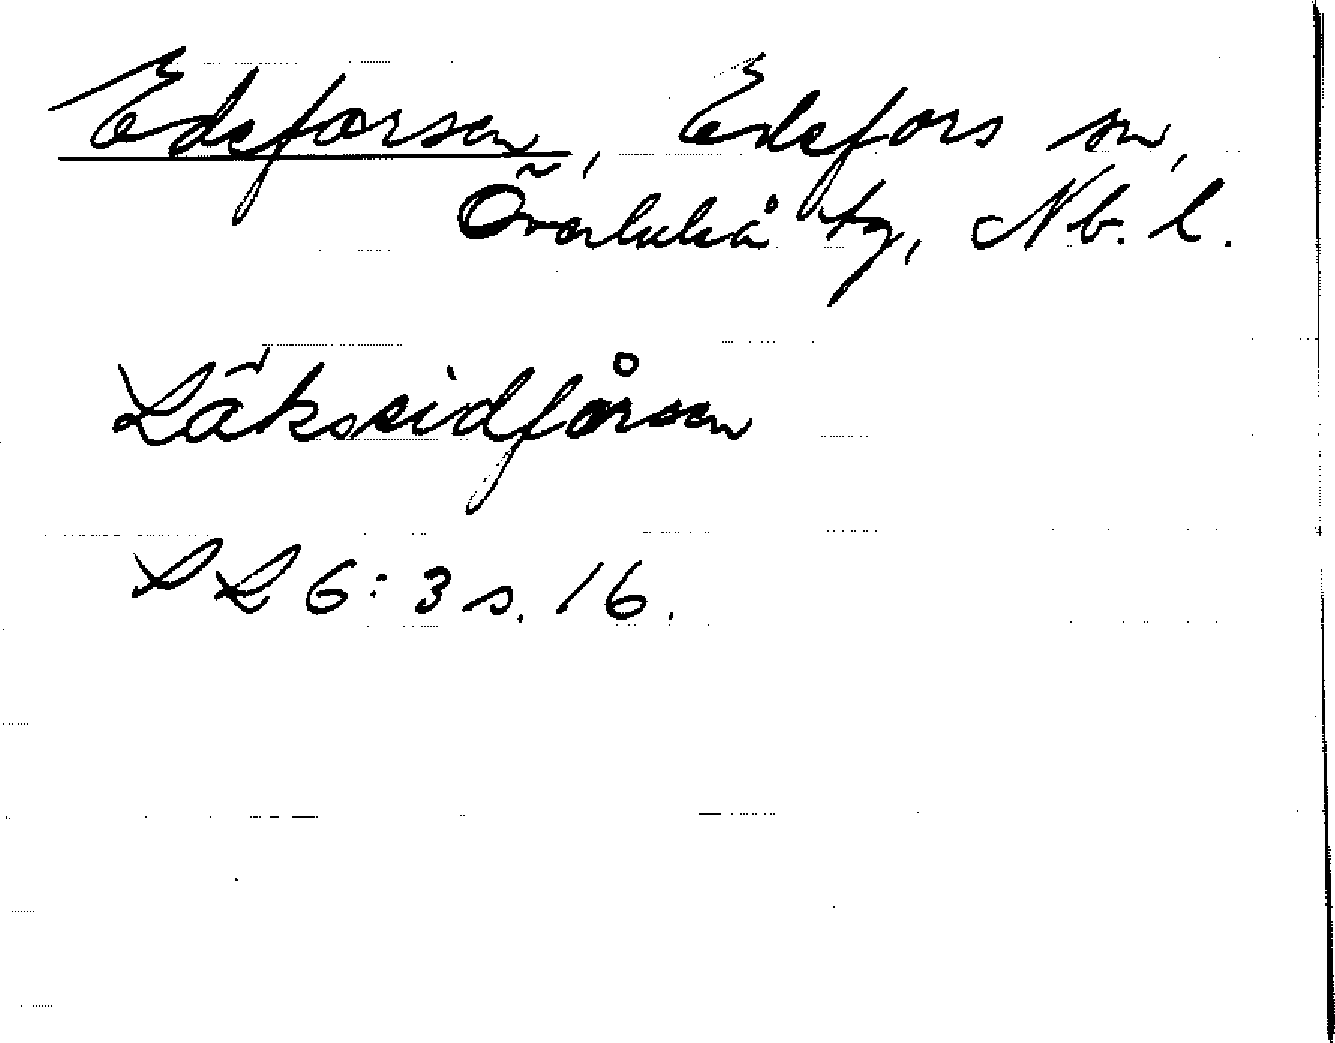 Edeforsen, Edefors sn,
Överluleå tg, Nb. l.
Läkseidfårsen
S L 6:3 s. 16.